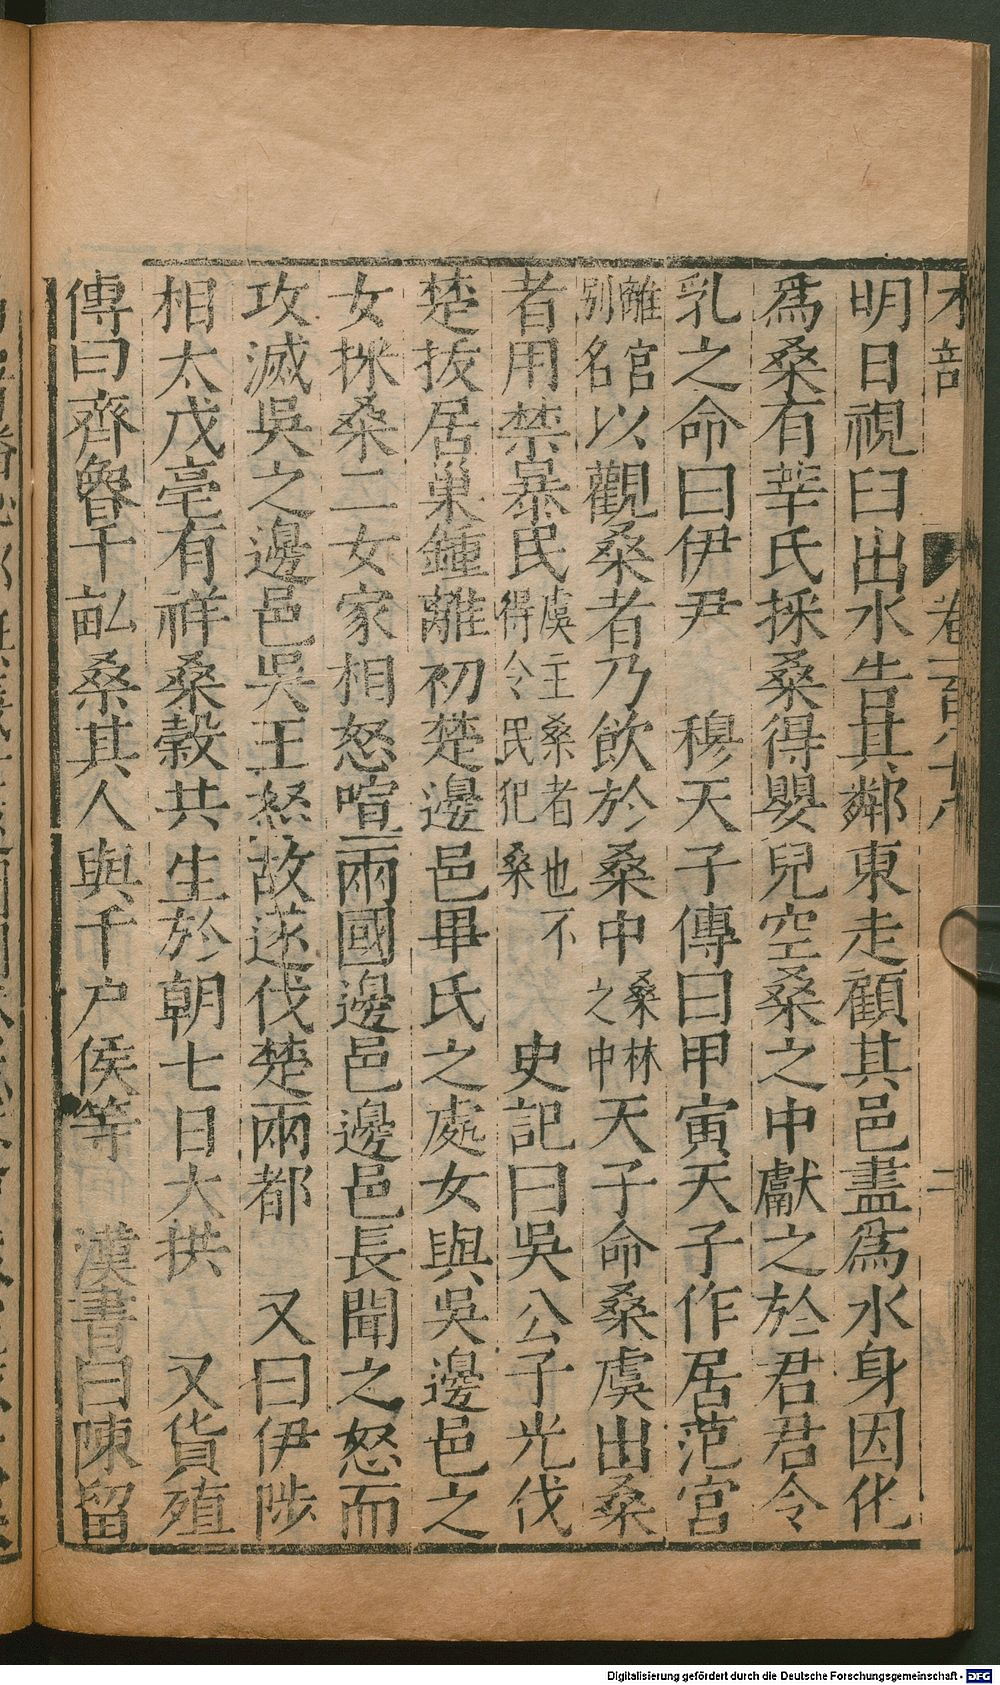 木部 卷一百八十八 二
明日視臼出水告其鄰東走顧其邑盡爲水身因化
爲桑有莘氏採桑得嬰兒空桑之中獻之於君君令
乳之命曰伊尹 穆天子傳曰甲寅天子作居范宮
離宮別名以觀桑者乃飲於桑中桑林之中天子命桑虞出桑
者用禁暴民虞主桑者也不得令民犯桑 史記曰吳公子光伐
楚拔居巢鍾離初楚邊邑畢氏之處女與吳邊邑之
女採桑二女家相怒喧兩國邊邑邊邑長聞之怒而
攻滅吳之邊邑吳王怒故遂伐楚兩都 又曰伊陟
相太戊亳有祥桑榖共生於朝七日大拱 又貨殖
傳曰齊魯千畝桑其人與千户侯等 漢書曰陳留
Digitalisierung gefördert durch die Deutsche Forschungsgemeinschaft - DFG